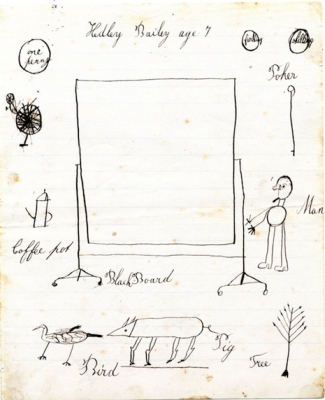 Hedley Bailey age 7
one
penny
shilling
Poker
Man
Coffee pot
BlackBoard
Bird
Pig
Tree